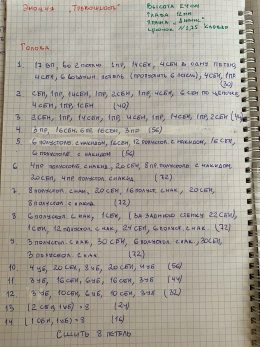 Эмоция "Тревожность"
Высота 24 см
Глаза 12 мм
крючок №1,75 Клевер
Голова.
1. 17 ВП, во 2 петлю 1пр, 14сбн, 4сбн в одну петлю,
4сбн, 6 воздушн петель (пропустить 6 петель), 4сбн, 1пр
(40)
3. 2сбн, 1пр, 14сбн, 1пр, 2сбн, 1пр, 14сбн, 1пр (44)
4. 3пр, 16сбн, 6пр, 16сбн, 3пр (56)
5. 6 полустолб. с накидом, 16сбн, 12 полустолб. с накидом, 16сбн,
6 полустолб. с накидом (56)
6. 4пр. полустолб. с накид., 20сбн, 8пр. полустолб с накидом,
20сбн, 4пр. полустолб. с накид (72)
7. 8 полустолб. с нак, 20сбн, 16 полуст. с нак, 20сбн,
8 полустолб. с накид (72)
8. 6 полустолб. с нак., 1сбн, (за заднюю стенку 22сбн),
1сбн, 12 полустолб. с нак, 24сбн, 6 полуст. с нак. (72)
9. 3 полустолб. с нак, 30сбн, 6 полустолб. с нак., 30сбн,
3 полустолб. с нак. (72)
10. 4уб, 20сбн, 8уб, 20сбн, 4уб (56)
11. 3уб, 16сбн, 6уб, 16сбн, 3уб (44)
12. 3уб, 10сбн, 6уб, 10сбн, 3уб (32)
13. (2сбн, 1уб) × 8 (24)
14. (1сбн, 1уб) × 8 (16)
Сшить 8 петель